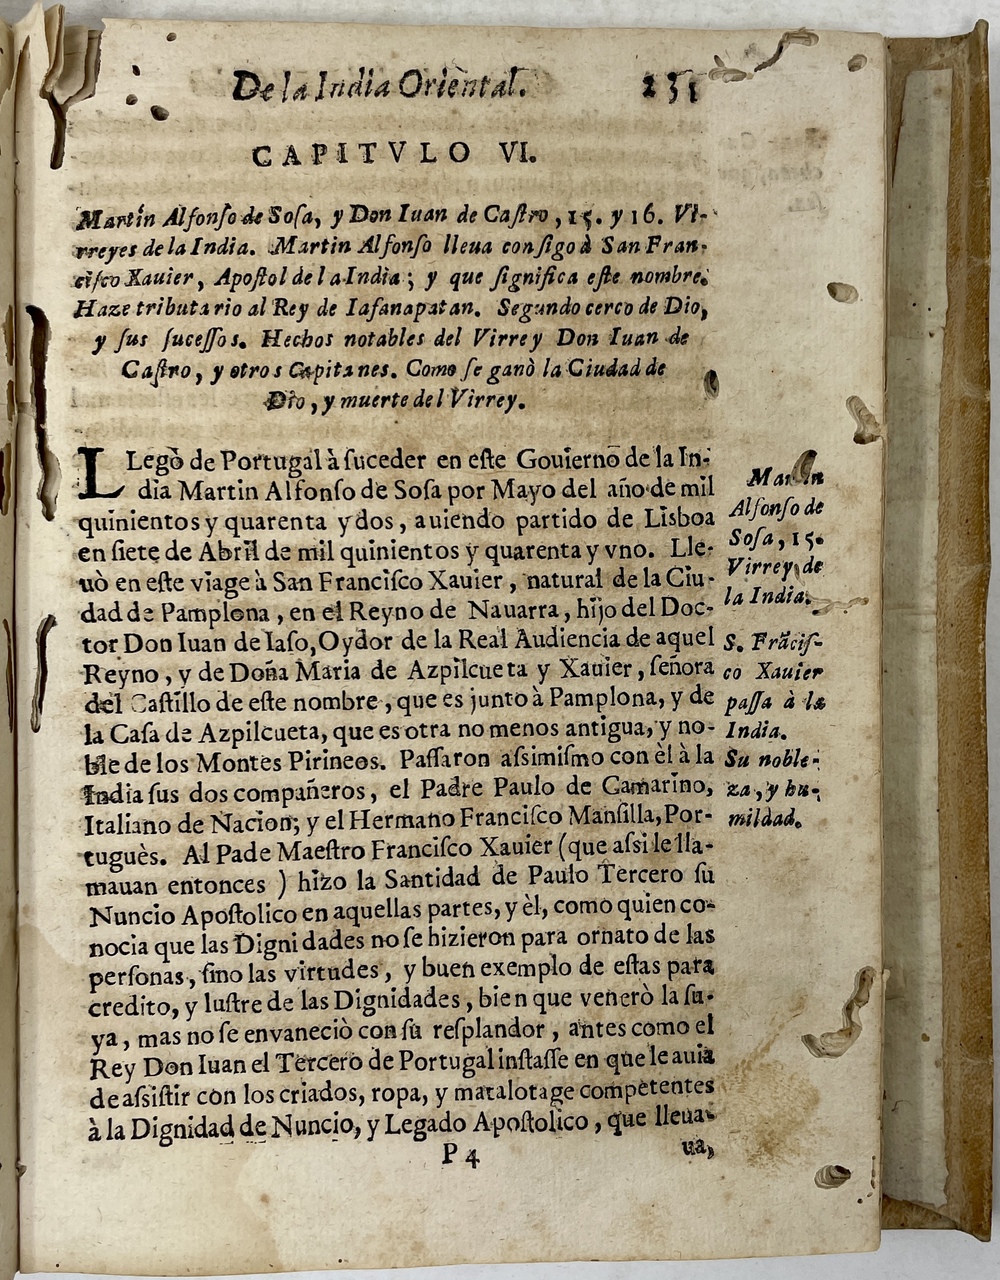 De la India Oriental. 231
CAPITVLO VI.
Martin Alfonſo de Soſa, y Don Iuan de Caſtro, 15. y 16. Vi-
rreyes de la India. Martin Alfonſo lleua conſigo à San Fran-
ciſco Xauier, Apoſtol de la India; y que ſignifica eſte nombre.
Haze tributario al Rey de Iafanapatan. Segundo cerco de Dio,
y ſus ſuceſſos. Hechos notables del Virrey Don Iuan de
Caſtro, y otros Capitanes. Como ſe ganò la Ciudad de
Dio, y muerte del Virrey.
LLegò de Portugal à ſuceder en eſte Gouierno de la In-
dia Martin Alfonſo de Soſa por Mayo del año de mil
quinientos y quarenta y dos, auiendo partido de Lisboa
en ſiete de Abril de mil quinientos y quarenta y vno. Lle-
uò en eſte viage à San Franciſco Xauier, natural de la Ciu-
dad de Pamplona, en el Reyno de Nauarra, hijo del Doc-
tor Don Iuan de Iaſo, Oydor de la Real Audiencia de aquel
Reyno, y de Doña Maria de Azpilcueta y Xauier, ſeñora
del Caſtillo de eſte nombre, que es junto à Pamplona, y de
la Caſa de Azpilcueta, que es otra no menos antigua, y no-
ble de los Montes Pirineos. Paſſaron aſsimiſmo con èl à la
India ſus dos compañeros, el Padre Paulo de Camarino,
Italiano de Nacion; y el Hermano Franciſco Manſilla, Por-
tuguès. Al Pade Maeſtro Franciſco Xauier (que aſsi le lla-
mauan entonces) hizo la Santidad de Paulo Tercero ſu
Nuncio Apoſtolico en aquellas partes, y èl, como quien co-
nocia que las Dignidades no ſe hizieron para ornato de las
perſonas, ſino las virtudes, y buen exemplo de eſtas para
credito, y luſtre de las Dignidades, bien que venerò la ſu-
ya, mas no ſe envaneciò con ſu reſplandor, antes como el
Rey Don Iuan el Tercero de Portugal inſtaſſe en que le auia
de aſsiſtir con los criados, ropa, y matalotage competentes
à la Dignidad de Nuncio, y Legado Apoſtolico, que lleua-
P 4 ua,
Martin
Alfonſo de
Soſa, 15.
Virrey de
la India.
S. Frãciſ-
co Xauier
paſſa à la
India.
Su noble-
za, y hu-
mildad.